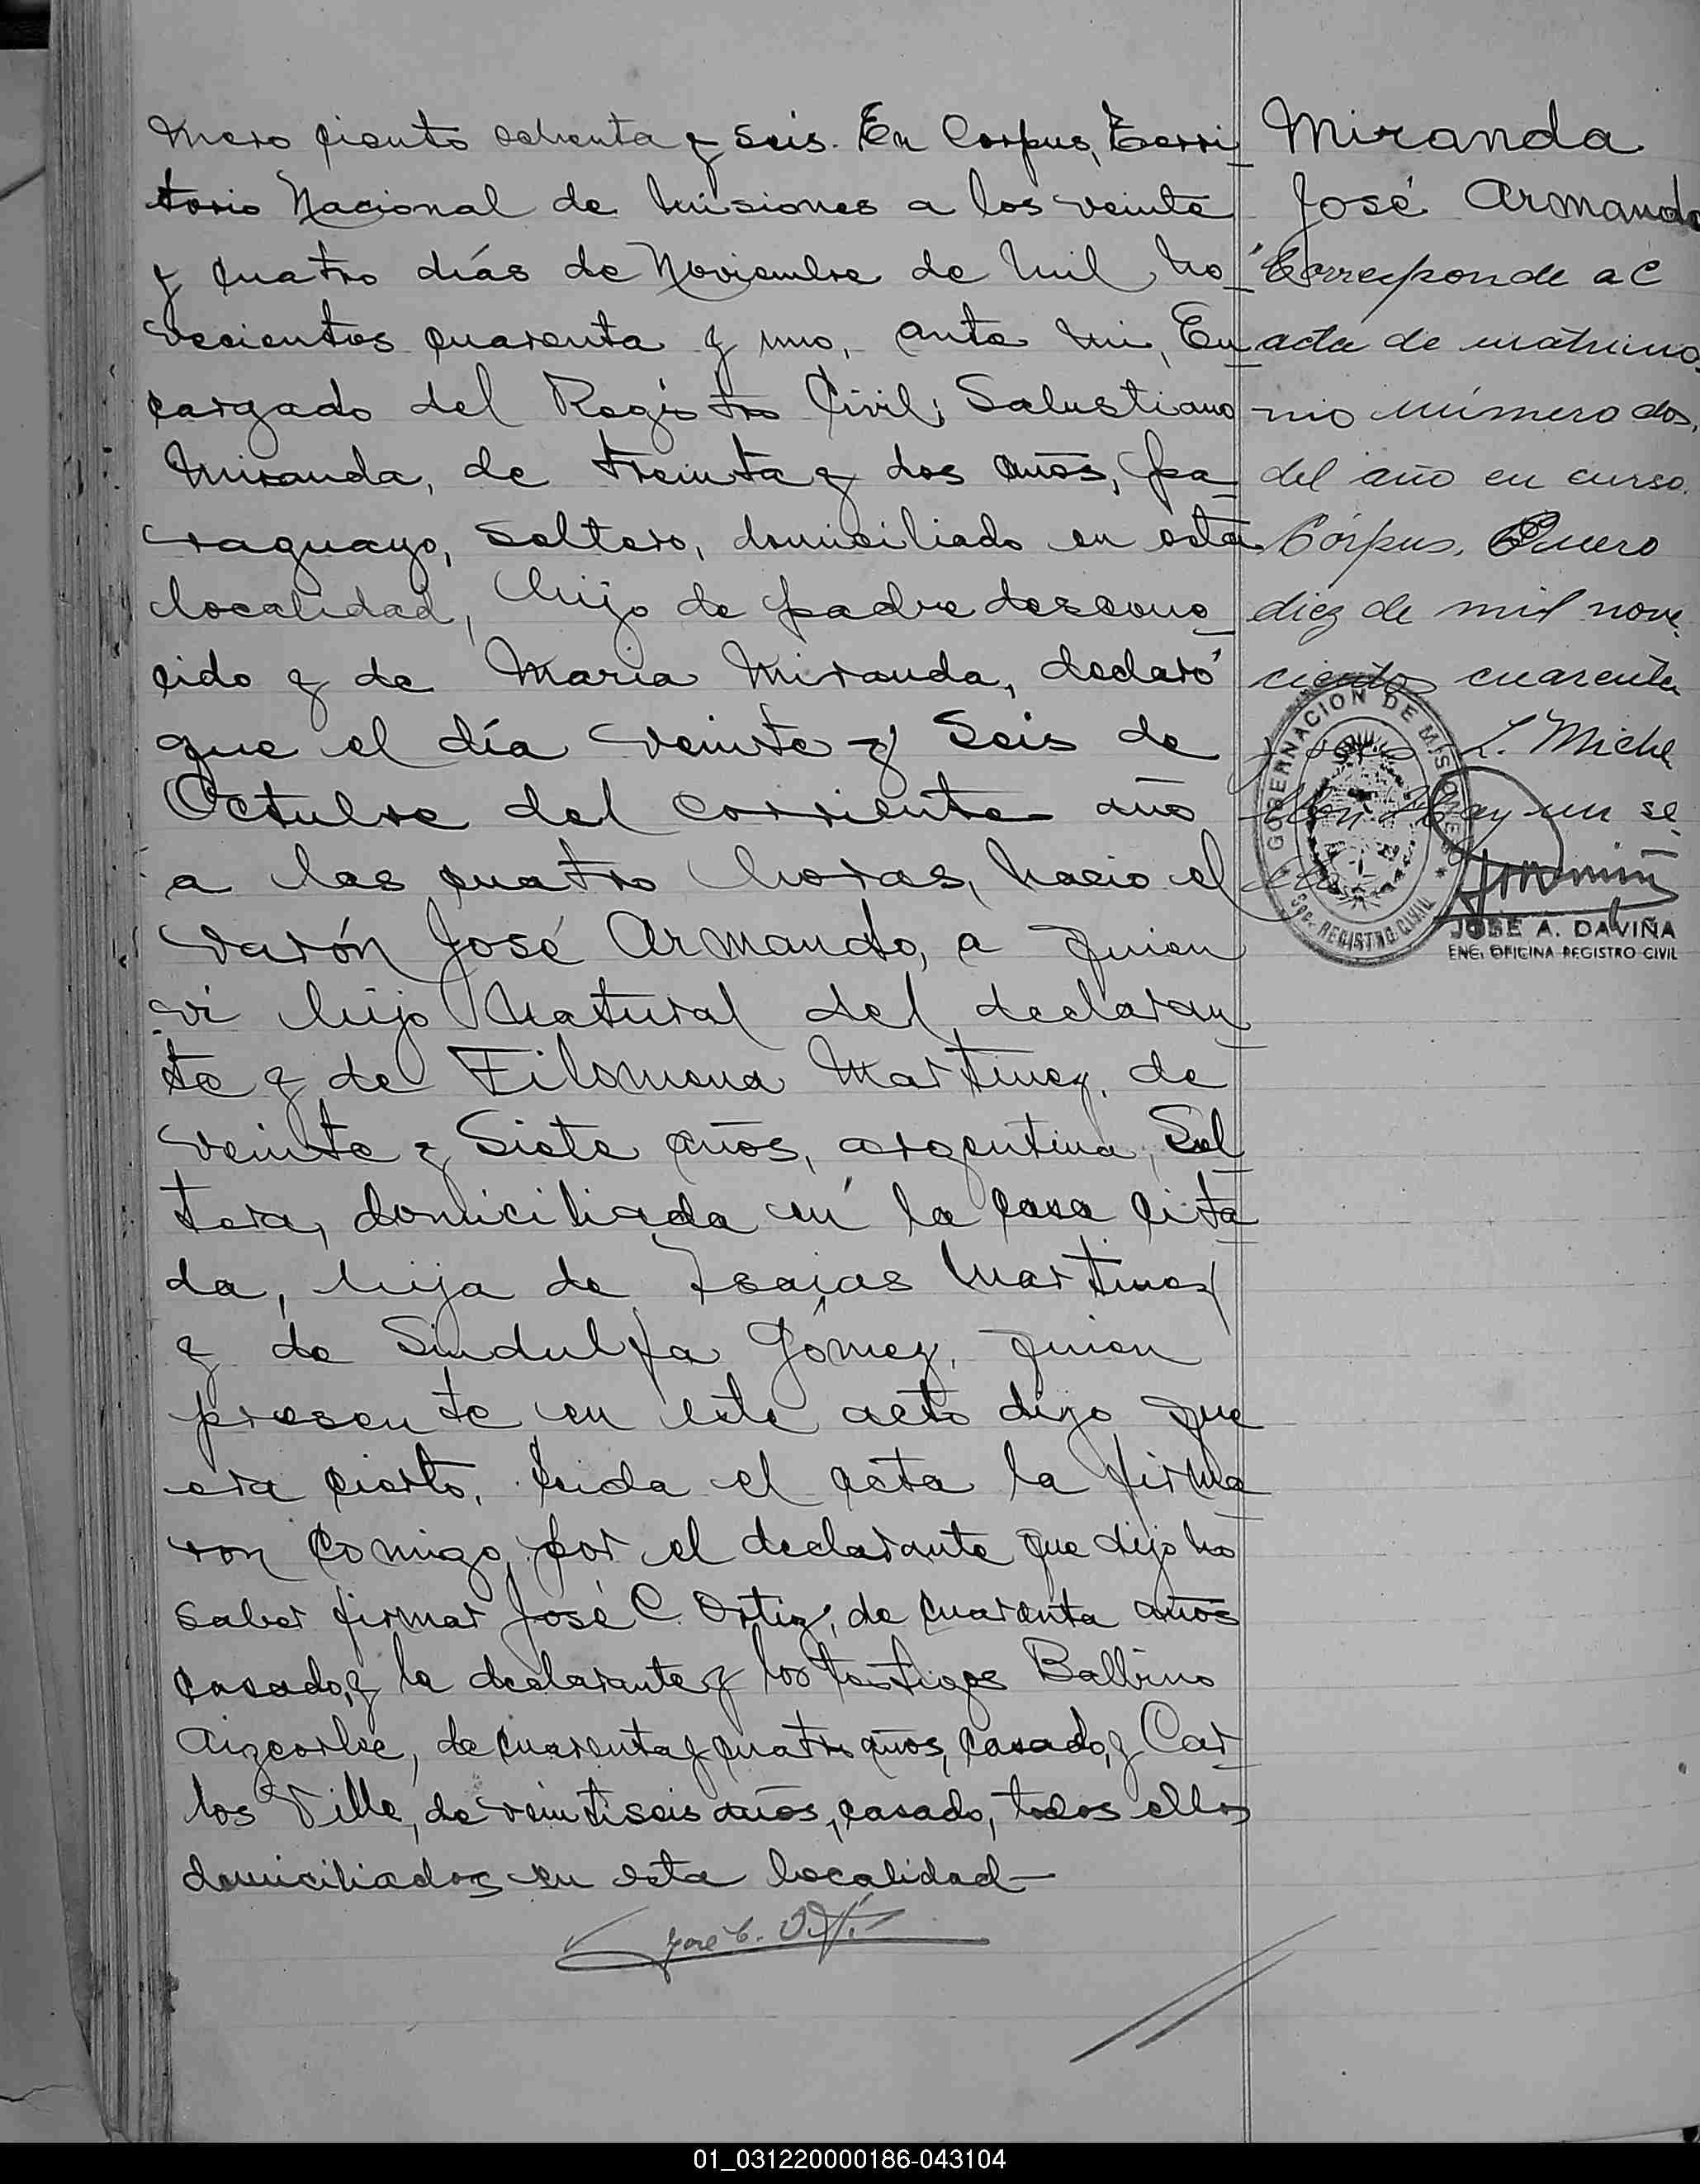 mero ciento ochenta y seis. En Corpus, Terri
torio Nacional de Misiones a los veinte
y cuatro días de Noviembre de mil no
vecientos cuarenta y uno, ante mi, En
cargado del Registro Civil; Salustiano
Miranda, de treinta y dos años, pa
raguayo, soltero, domiciliado en esta
localidad, hijo de padre descono
cido y de Maria Miranda, declaró
que el día veinte y seis de
Octubre del corriente año
a las cuatro horas, nacio el
varón José Armando, a quien
vi hijo natural del declaran
te y de Filomena Martinez, de
veinte y siete años, argentina, Sol
tera, domiciliada en la casa cita
da, hija de Isaias Martinez
y de Sindulfa Gómez, quien
presente en este acto dijo que
era cierto. Leida el acta la firma
ron comigo, por el declarante que dijo no
saber firmar José C. Ortiz, de cuarenta años
casado, y la declarante y los testigos Balbino
Aizcorbe, de cuarenta y cuatro años, casado, y Car
los Ville, de veintiseis años, casado, todos ellos
domiciliados en esta localidad—
José C. Ortiz
Miranda
José Armando
Corresponde a C
acta de matrimo
nio número dos,
del año en curso.
Córpus, Enero
diez de mil nove
cientos cuarenta
L. Michel
Hay un se
llo
GOBERNACION DE MISIONES
REGISTRO CIVIL
JOSÉ A. DAVIÑA
ENC. OFICINA REGISTRO CIVIL
01_031220000186-043104